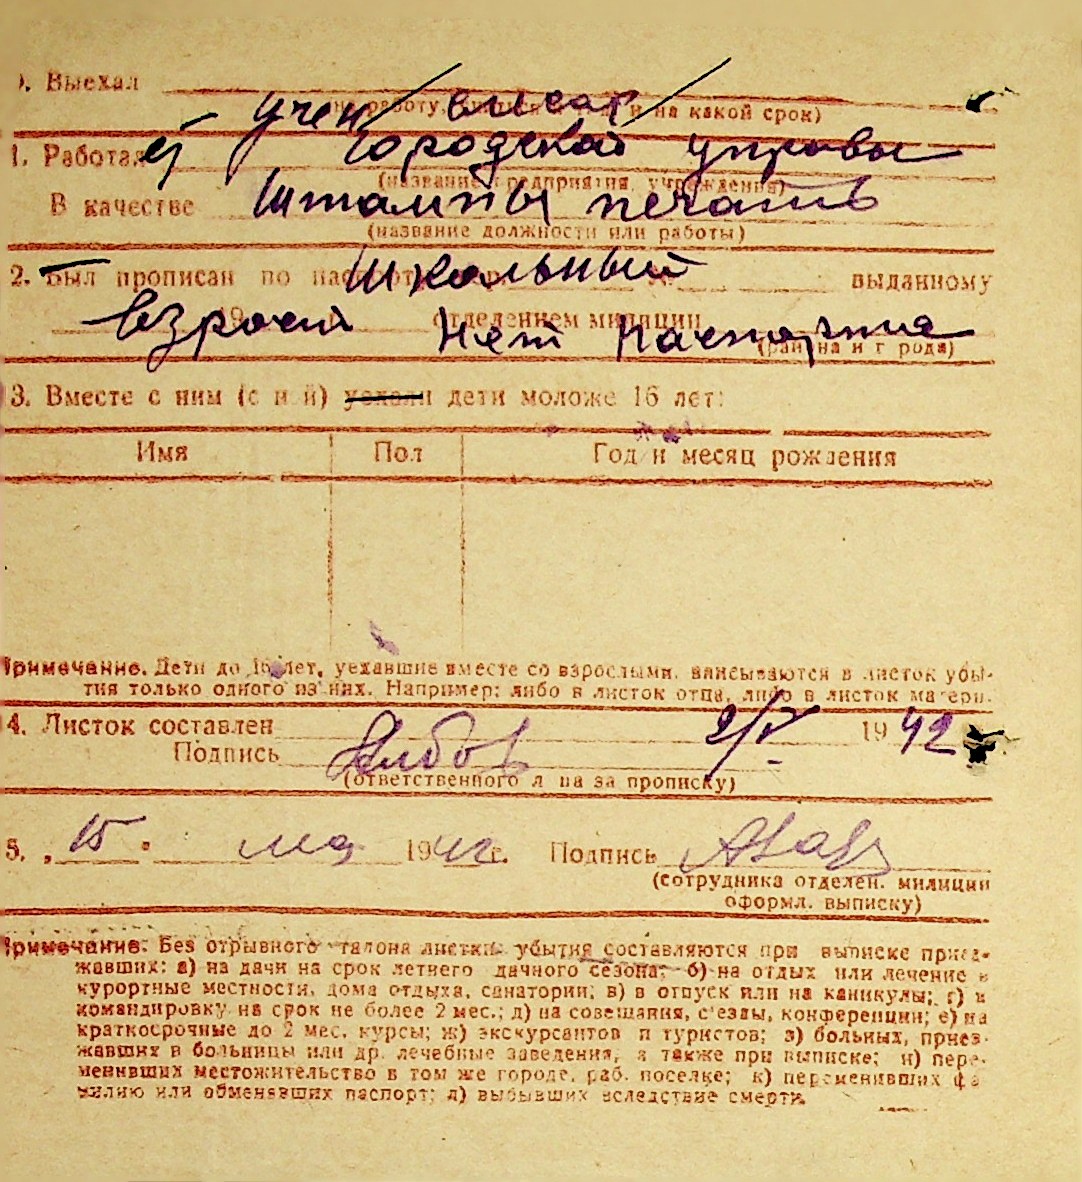 0. Выехал
(на работу, и на какой срок)
учен
городской управы
1. Работал
(название предприятия, учреждения)
В качестве Штампы печать
(название должности или работы)
2. Был прописан по паспорту Школьный выданному
взрослий нет
отделением милиции
(района и города)
3. Вместе с ним (с ней) уехали дети моложе 16 лет:
Имя Пол Год и месяц рождения
Примечание. Дети до 16 лет, уехавшие вместе со взрослыми, вписываются в листок убы-
тия только одного из них. Например: либо в листок отца, либо в листок матери.
4. Листок составлен 2/V 1942
Подпись
(ответственного лица за прописку)
5. „15" мая 1942 г. Подпись
(сотрудника отделен. милиции
оформл. выписку)
Примечание: Без отрывного талона листки убытия составляются при выписке приез-
жавших: а) на дачи на срок летнего дачного сезона; б) на отдых или лечение в
курортные местности, дома отдыха, санатории; в) в отпуск или на каникулы; г) в
командировку на срок не более 2 мес.; д) на совещания, с'езды, конференции; е) на
краткосрочные до 2 мес. курсы; ж) экскурсантов и туристов; з) больных, приез-
жавших в больницы или др. лечебные заведения, а также при выписке; и) пере-
менивших местожительство в том же городе, раб. поселке; к) переменивших фа-
милию или обменявших паспорт; л) выбывших вследствие смерти.